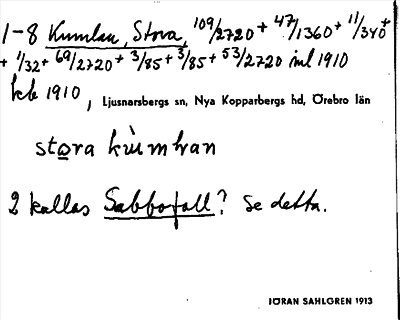 1-8 Kumlan, Stora, 109/2720 + 47/1360 + 11/340 +
+ 1/32 + 69/2720 + 3/85 + 3/85 + 53/2720 ml 1910
kb 1910, Ljusnarsbergs sn, Nya Kopparbergs hd, Örebro län
stora
2 kallas Sabbofall? Se detta.
JÖRAN SAHLGREN 1913